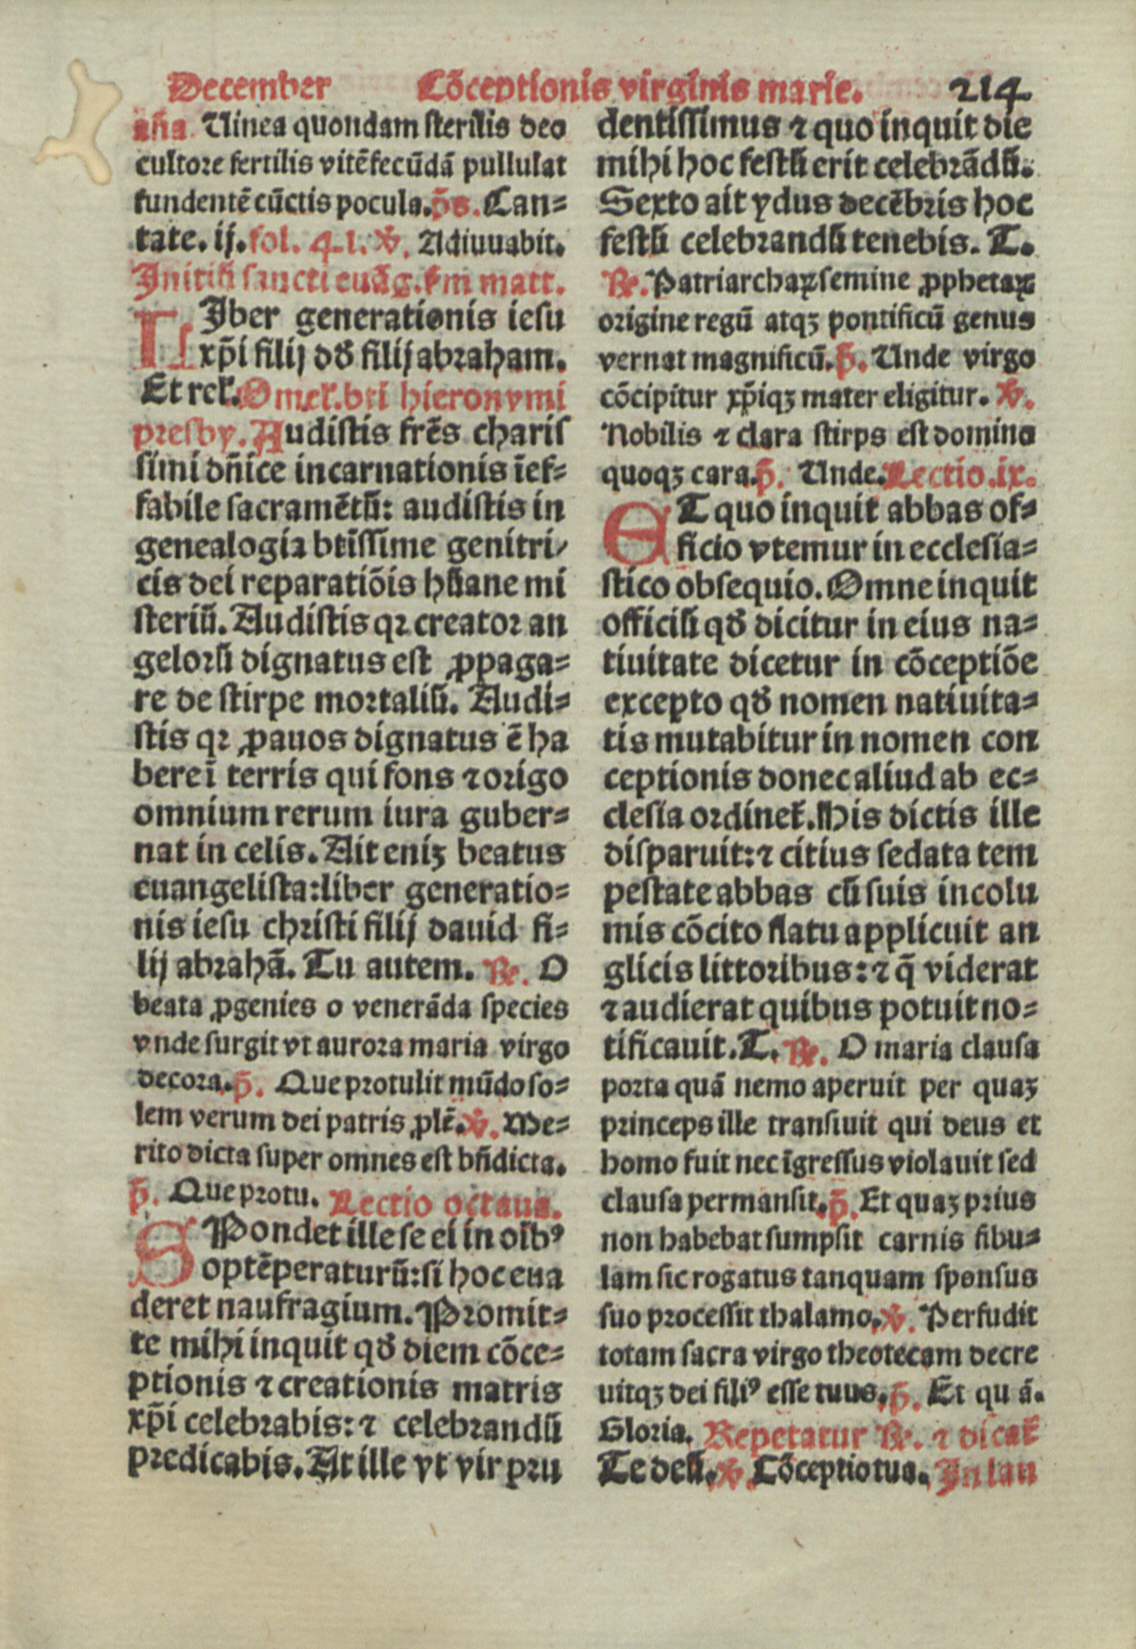 December Cōceptionis virginis marie. 214
aña Uinea quondam sterilis deo
cultore fertilis vitē fecūdā pullulat
fundentē cūctis pocula. p̄s. Can=
tate. ij. fol. 41. ℣. Adiuuabit.
Initiū sancti euāg. ẜm matt.
LIber generationis iesu
xp̄i filij dđ filij abraham.
Et relꝭ. Omelꝭ. bti hieronymi
presby. Audistis frēs charis
simi dñice incarnationis īef=
fabile sacramētū: audistis in
genealogia btīssime genitri/
cis dei reparatiōis hūane mi
steriū. Audistis qꝛ creator an
gelorū dignatus est ꝓpaga=
re de stirpe mortaliū. Audi=
stis qꝛ ꝓauos dignatus ē ha
bere ī terris qui fons ⁊ origo
omnium rerum iura guber=
nat in celis. Ait eniꝫ beatus
euangelista: liber generatio=
nis iesu christi filij dauid fi=
lij abrahā. Tu autem. ℟. O
beata ꝓgenies o venerāda species
vnde surgit vt aurora maria virgo
decora. p̄. Que protulit mūdo so=
lem verum dei patris ꝓlē. ℣. Me=
rito dicta super omnes est bñdicta.
p̄. Que protu. Lectio octaua.
SPondet ille se ei in oībꝰ
optēperaturū: si hoc eua
deret naufragium. Promit=
te mihi inquit qđ diem cōce=
ptionis ⁊ creationis matris
xp̄i celebrabis: ⁊ celebrandū
predicabis. At ille vt vir pru
dentissimus ⁊ quo inquit die
mihi hoc festū erit celebrādū.
Sexto ait ydus decēbris hoc
festū celebrandū tenebis. T.
℟. Patriarchaꝝ semine ꝓphetaꝝ
origine regū atqꝫ pontificū genus
vernat magnificū. p̄. Unde virgo
cōcipitur xp̄iqꝫ mater eligitur. ℣.
Nobilis ⁊ clara stirps est domino
quoqꝫ cara. p̄. Unde. Lectio. ix.
ET quo inquit abbas of=
ficio vtemur in ecclesia=
stico obsequio. Omne inquit
officiū qđ dicitur in eius na=
tiuitate dicetur in cōceptiōe
excepto qđ nomen natiuita=
tis mutabitur in nomen con
ceptionis donec aliud ab ec=
clesia ordinetꝭ. His dictis ille
disparuit: ⁊ citius sedata tem
pestate abbas cū suis incolu
mis cōcito flatu applicuit an
glicis littoribus: ⁊ q̄ viderat
⁊ audierat quibus potuit no=
tificauit. T. ℟. O maria clausa
porta quā nemo aperuit per quaꝫ
princeps ille transiuit qui deus et
homo fuit nec īgressus violauit sed
clausa permansit. p̄. Et quaꝫ prius
non habebat sumpsit carnis fibu=
lam sic rogatus tanquam sponsus
suo processit thalamo. ℣. Perfudit
totam sacra virgo theotecam decre
uitqꝫ dei filiꝰ esse tuus. p̄. Et qu ā.
Gloria. Repetatur ℟. ⁊ dicatꝭ
Te deū. ℣. Cōceptio tua. In lau